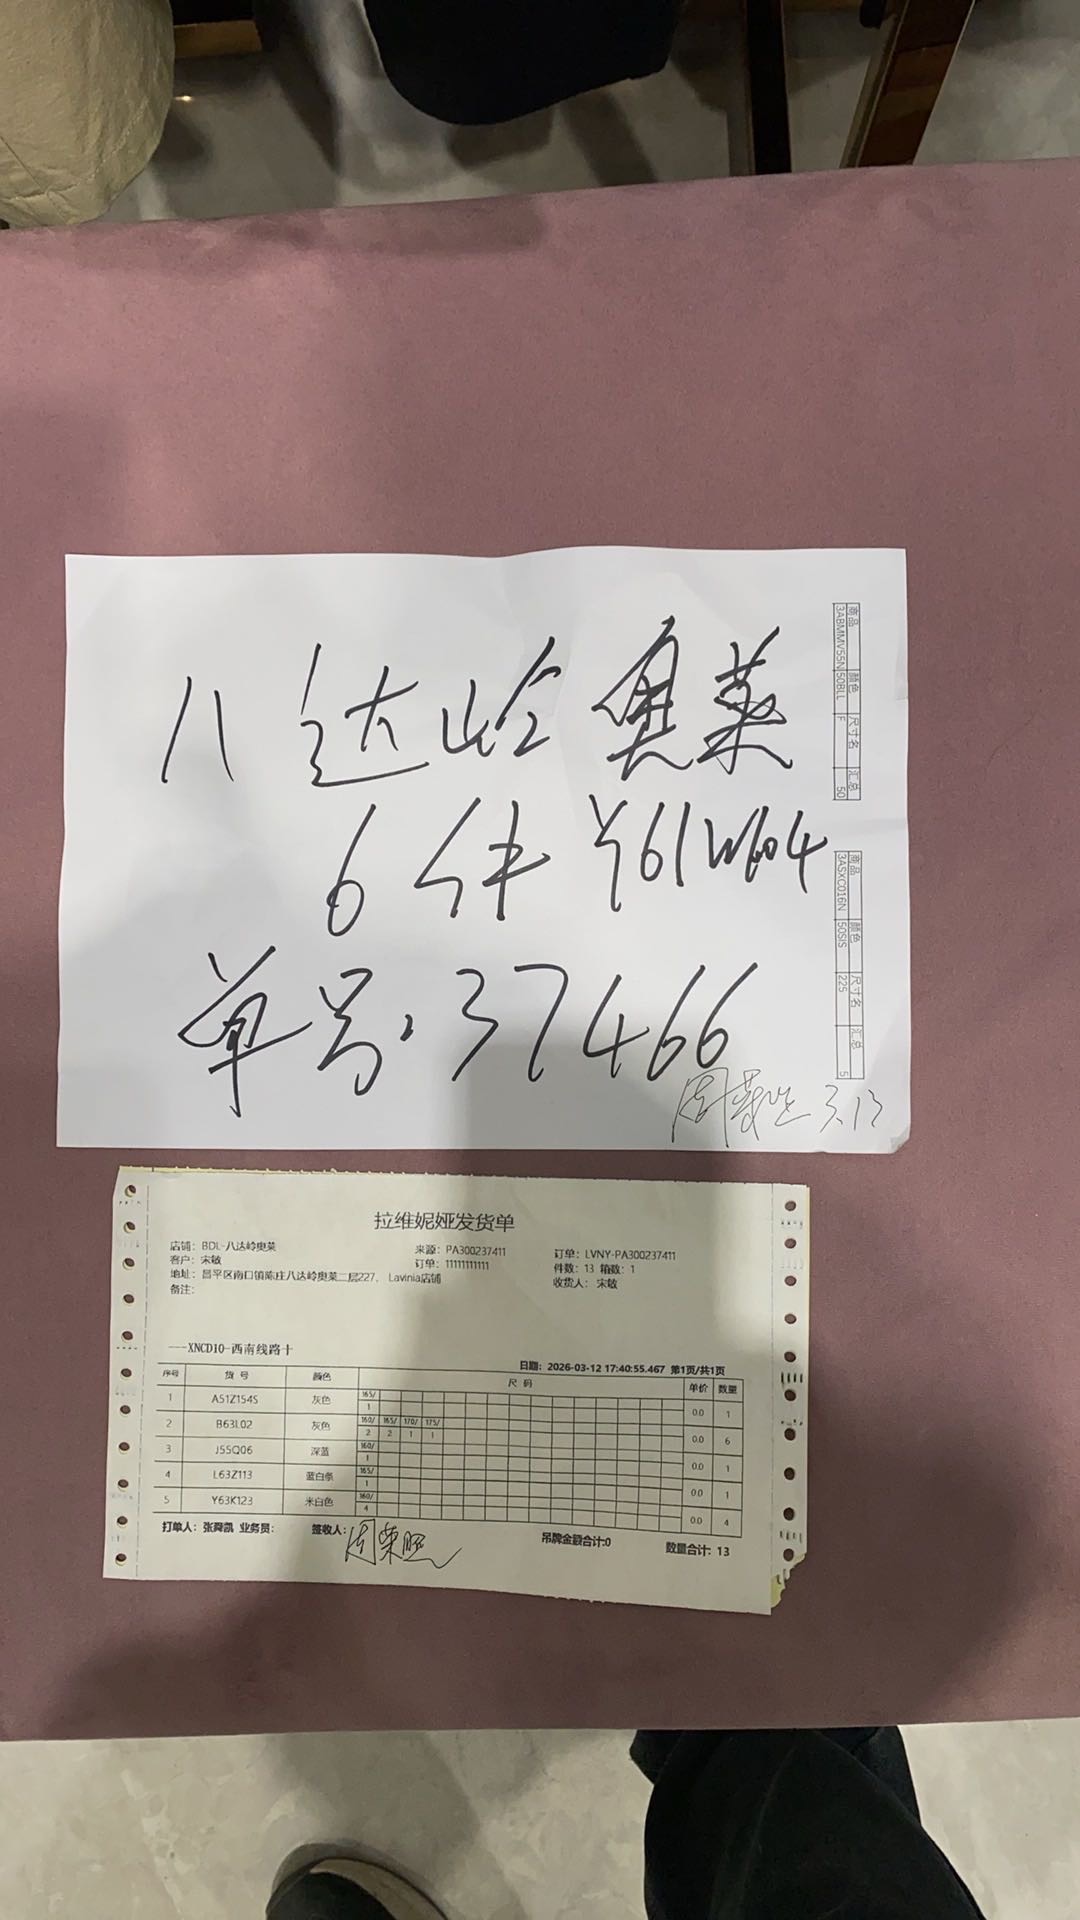 八达岭奥莱
6件
单号.37466
3.13
商品 颜色 尺寸名 汇总
3ABMMV55N 50BLL F 50
商品 颜色 尺寸名 汇总
3ASXC016N 50SIS 225 5
拉维妮娅发货单
店铺：BDL-八达岭奥莱 来源：PA300237411 订单：LVNY-PA300237411
客户：宋敏 订单：11111111111 件数：13 箱数：1
地址：昌平区南口镇陈庄八达岭奥莱二层227， Lavinia店铺 收货人：宋敏
备注：
----XNCD10-西南线路十
日期：2026-03-12 17:40:55.467 第1页/共1页
序号 货号 颜色 尺码 单价 数量
1 A51Z154S 灰色 165/ 1 0.0 1
2 B63L02 灰色 160/ 165/ 170/ 175/ 2 2 1 1 0.0 6
3 J55Q06 深蓝 160/ 1 0.0 1
4 L63Z113 蓝白条 165/ 1 0.0 1
5 Y63K123 米白色 160/ 4 0.0 4
打单人：张舜凯 业务员： 签收人：周荣照 吊牌金额合计:0 数量合计：13